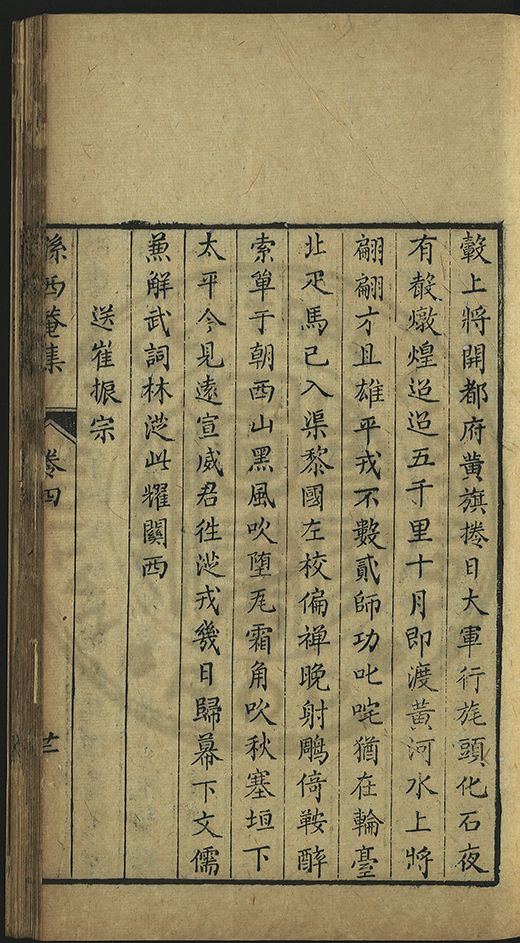 轂上將開都府黄旗捲日大軍行旄頭化石夜
有聲燉煌迢迢五千里十月即渡黄河水上將
翩翩才且雄平戎不數貳師功叱咤猶在輪臺
北疋馬已入渠黎國左校偏禆晚射鵰倚鞍醉
索單于朝西山黑風吹堕瓦霜角吹秋塞垣下
太平今見遠宣威君徃從戎幾日歸幕下文儒
兼解武詞林從此耀關西
送崔振宗
孫西菴集
卷四